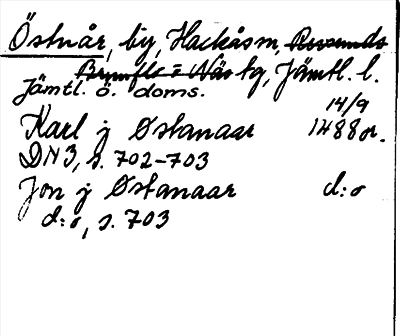 Östnår, by, Hackås sn, Revsunds
Brunflo = Näs tg, Jämtl. l.
Jämtl. ö. doms.
14/9
Karl j Østanaar 1488 or.
DN 3, s. 702-703
Jon j Østanaar d:o
d:o, s. 703